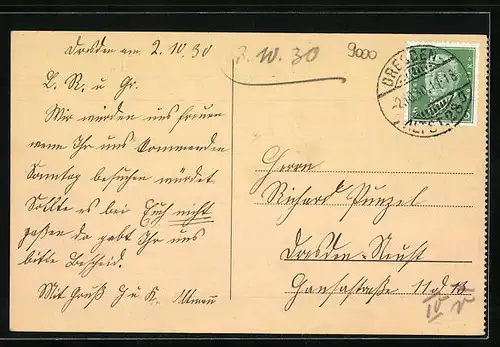 Dresden am 2.10.30
3.10.30
9000
L. R. u Gr.
Wir würden uns freuen
wenn Ihr uns kommenden
Sonntag besuchen würdet
Sollte es bei Euch nicht
paßen da gebt Ihr uns
bitte Bescheid.
Mit Gruß H u K.
DRESDEN
ALTST. 28
Herrn
Richard Punzel
Dresden-Neust
Hansastraße 11 d
IV